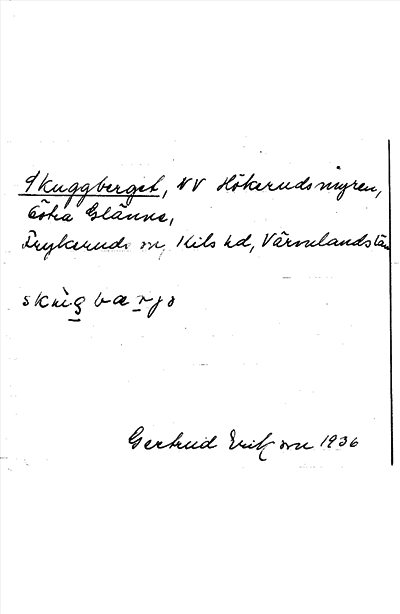 Skuggberget, NV Hökerudsmyren,
Östra Glänne,
Frykeruds sn, Kils hd, Värmlands län
skùg bærjə
Gertrud Eriksson 1936